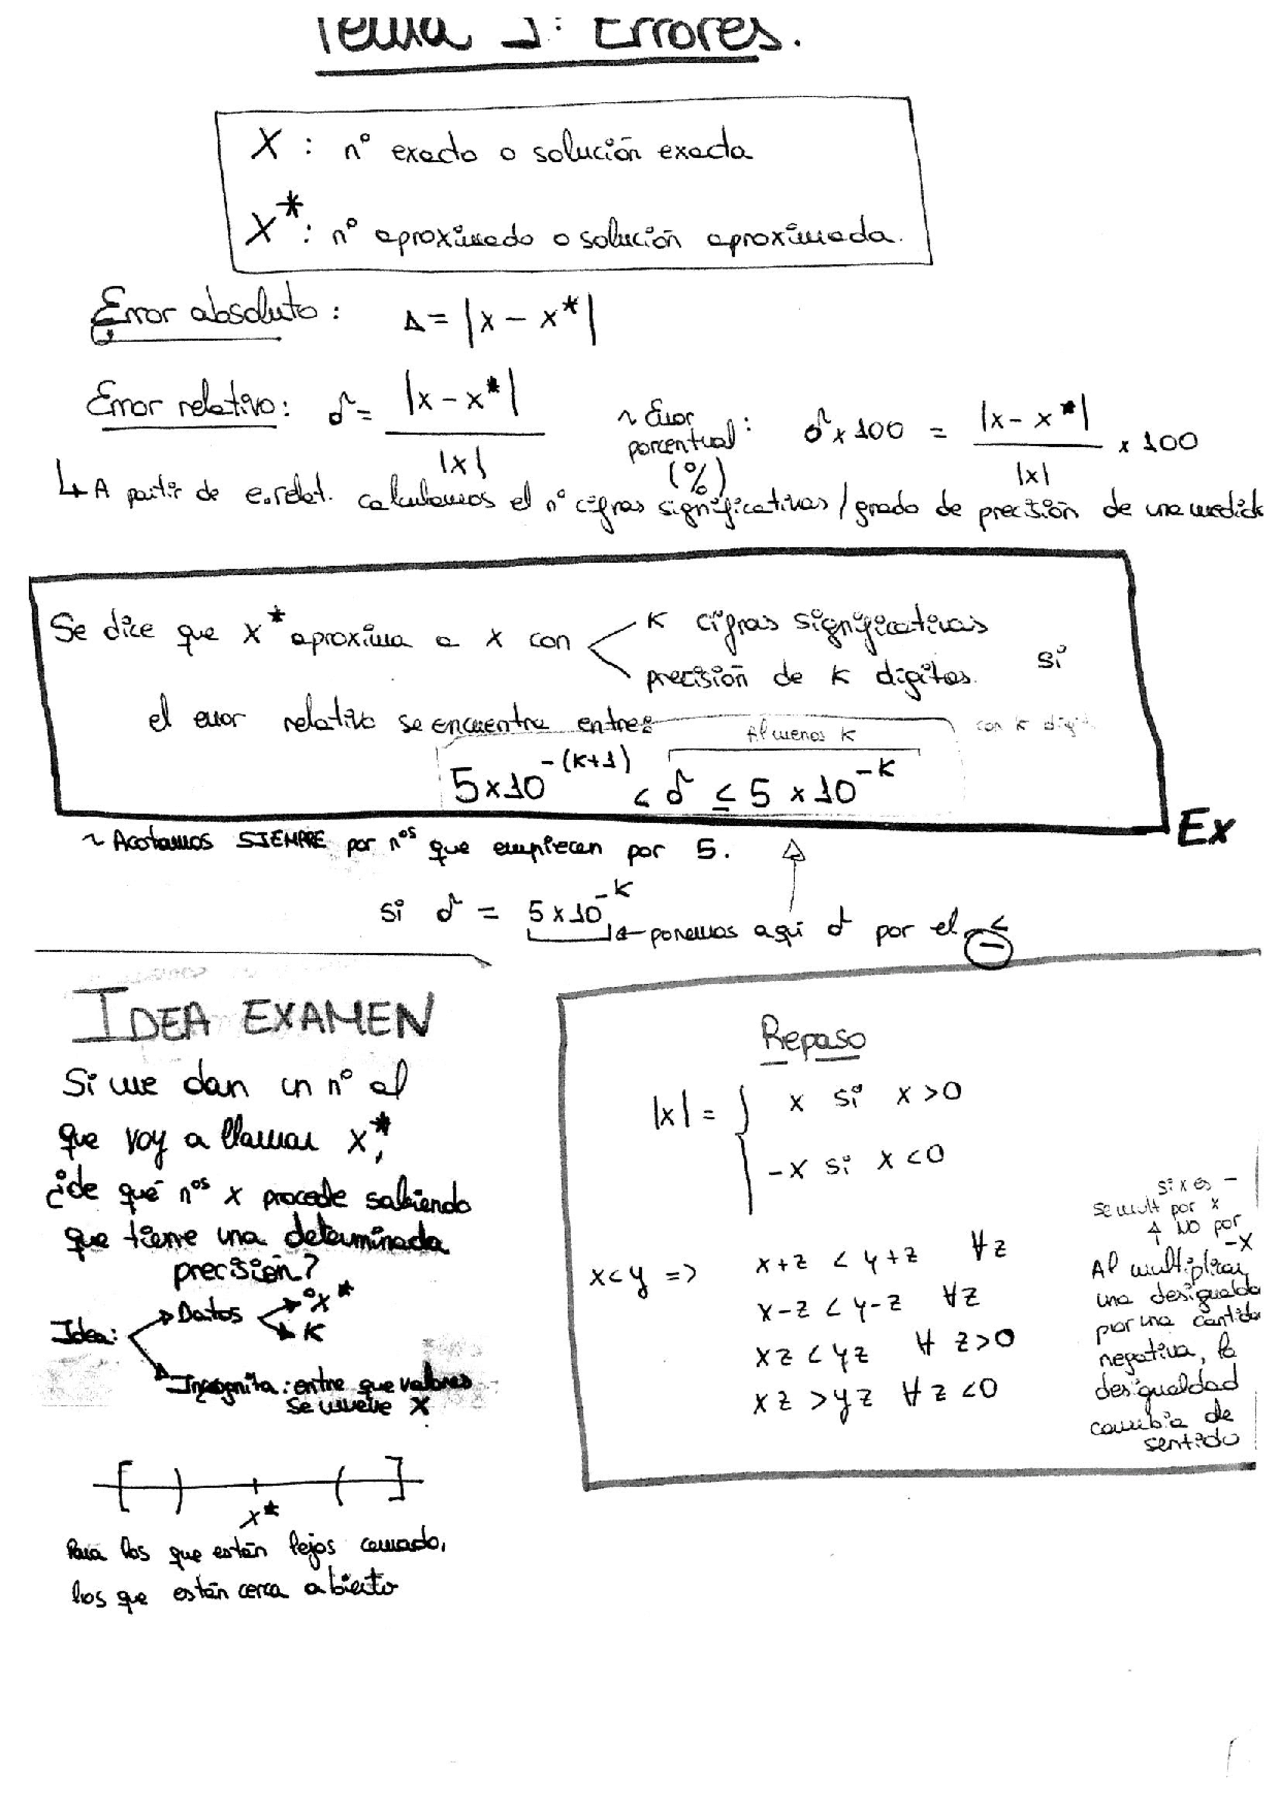 Tema 1: Errores.
X : nº exacto o solución exacta
X*: nº aproximado o solución aproximada.
Error absoluto: Δ = |x - x*|
Error relativo: δ = |x - x*| / |x| ~ Error porcentual (%): δ x 100 = |x - x*| / |x| x 100
↳ A partir de e.relat. calculamos el nº cifras significativas / grado de precisión de una medida
Se dice que x* aproxima a x con < K cifras significativas
precisión de K dígitos. si
el error relativo se encuentra entre:
Al menos K
5x10^-(K+1) < δ ≤ 5 x 10^-K
Ex
~ Acotamos SIEMPRE por nºs que empiecen por 5.
si δ = 5x10^-K ← ponemos aquí δ por el ≤
IDEA EXAMEN
Si me dan un nº al
que voy a llamar x*,
¿de qué nºs x procede sabiendo
que tiene una determinada
precisión?
Idea: → Datos → x*
→ K
→ Incógnita: entre que valores
se mueve X
[ ) x* ( ]
Para los que están lejos cerrado,
los que están cerca abierto
Repaso
|x| = { x si x > 0
-x si x < 0
x < y => x+z < y+z ∀z
x-z < y-z ∀z
xz < yz ∀ z>0
xz > yz ∀ z<0
si x es -
se mult por x
↑ NO por
-x
Al multiplicar
una desigualda
por una cantida
negativa, la
desigualdad
cambia de
sentido